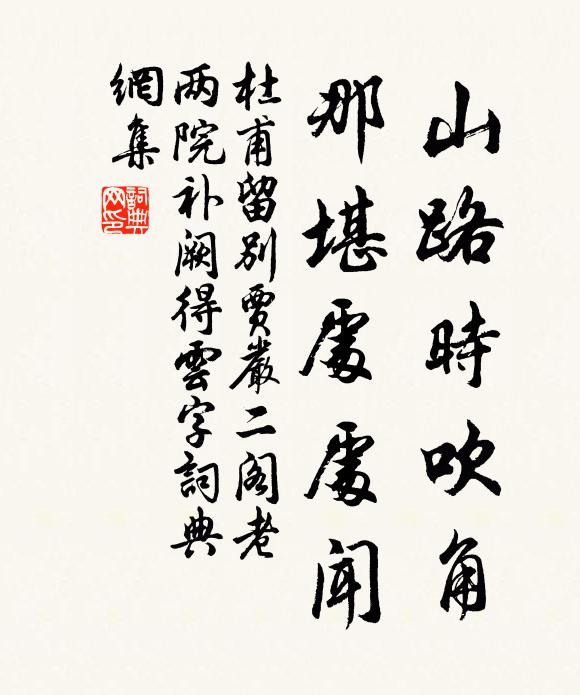 山路時吹角
那堪處處聞
杜甫留別賈嚴二閣老
两院补阙得雲字詞典
網集
詞典网印